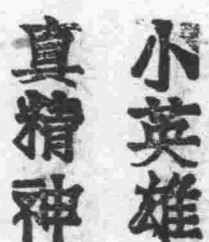 小英雄
真精神